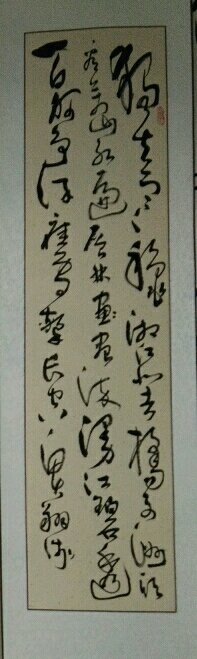 独立寒秋湘江北去橘子洲头
看万山红遍层林尽染漫江碧透
百舸争流鹰击长空鱼翔浅